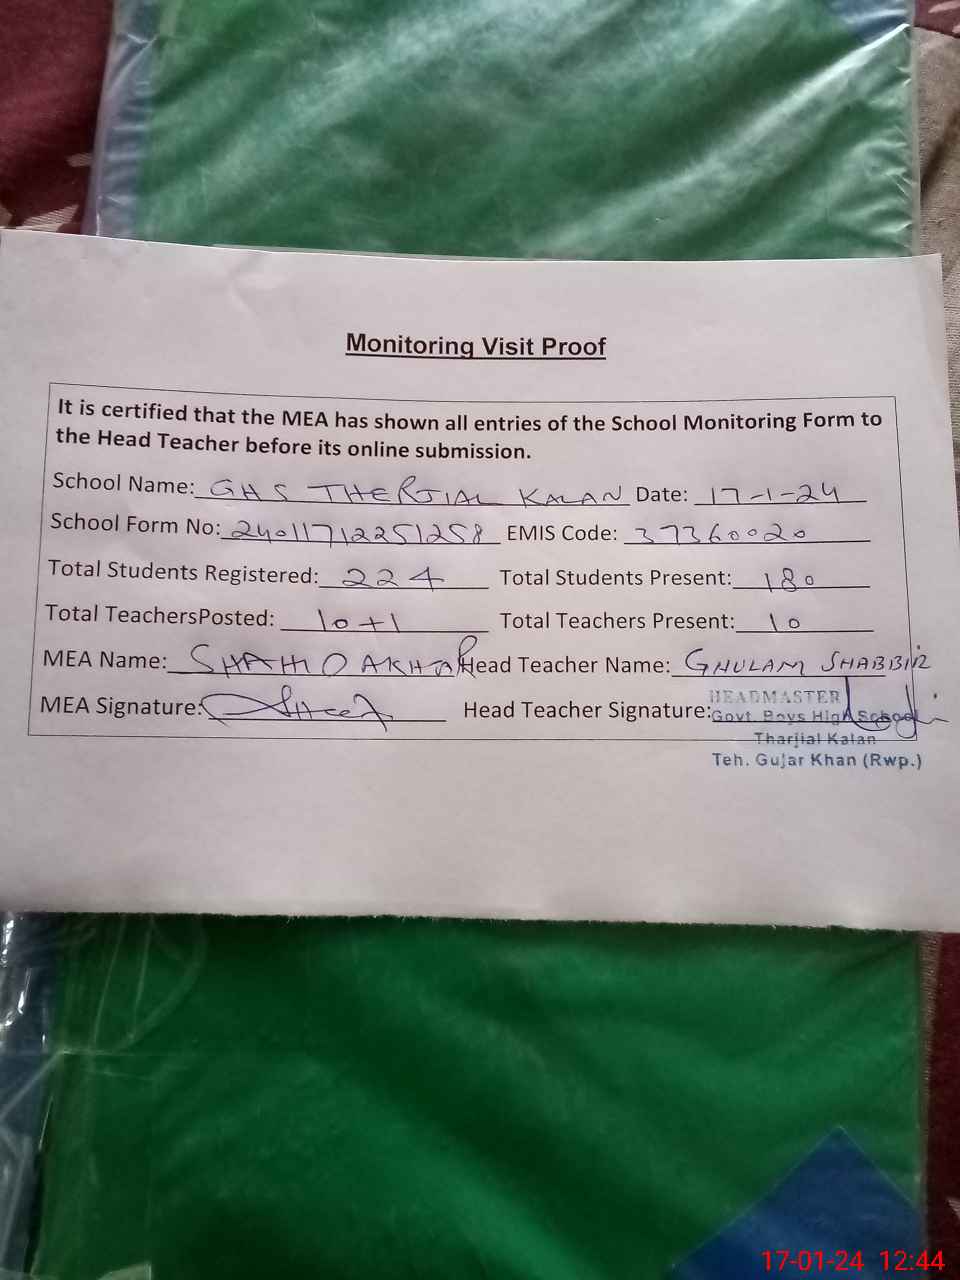 Monitoring Visit Proof
It is certified that the MEA has shown all entries of the School Monitoring Form to
the Head Teacher before its online submission.
School Name: GHS THERJIAL KALAN Date: 17-1-24
School Form No: 24011712251258 EMIS Code: 37360020
Total Students Registered: 224 Total Students Present: 180
Total TeachersPosted: 10+1 Total Teachers Present: 10
MEA Name: AKHTAR Head Teacher Name: GHULAM SHABBIR
MEA Signature: Head Teacher Signature:
HEADMASTER
Govt. Boys High School
Tharjial Kalan
Teh. Gujar Khan (Rwp.)
17-01-24 12:44